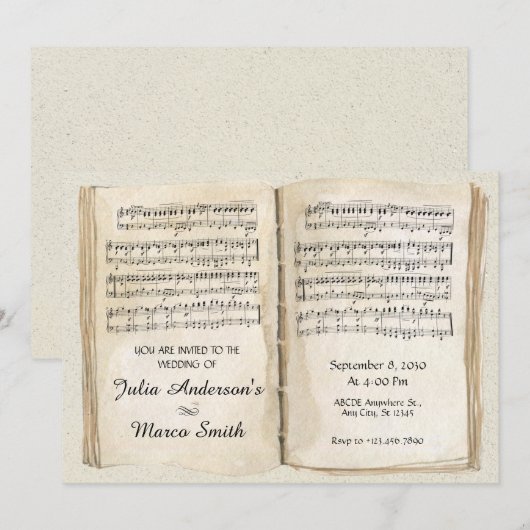 YOU ARE INVITED TO THE
WEDDING OF
Julia Anderson's
Marco Smith
September 8, 2030
At 4:00 Pm
ABCDE Anywhere St.,
Any City, St 12345
Rsvp to +123.456.7890